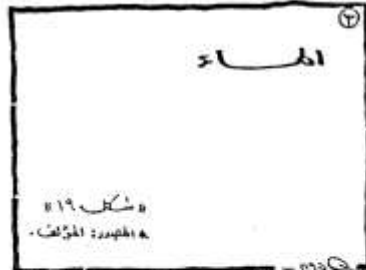 ٣
المـــاء
« شكل ١٩ »
* المصدر: المؤلف .